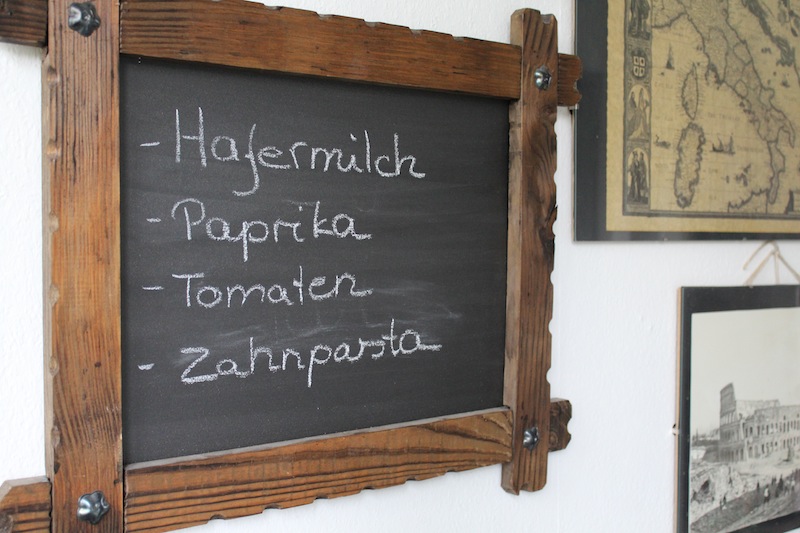 - Hafermilch
- Paprika
- Tomaten
- Zahnpasta